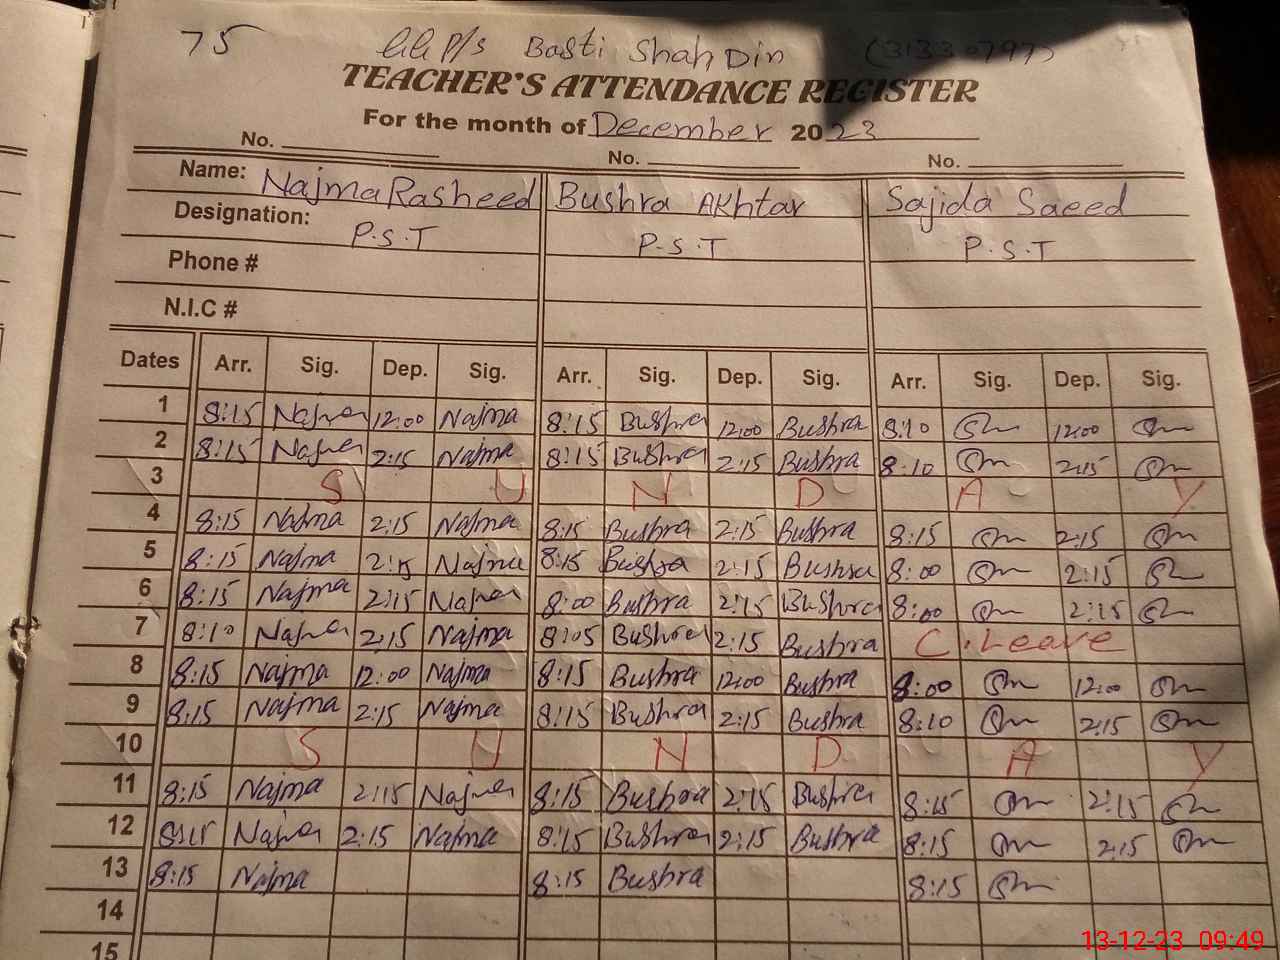 75 GGP/S Basti Shah Din (31330797)
TEACHER'S ATTENDANCE REGISTER
For the month of December 2023
No. No. No.
Name: Najma Rasheed Bushra Akhtar Sajida Saeed
Designation: P.S.T P.S.T P.S.T
Phone #
N.I.C #
Dates Arr. Sig. Dep. Sig. Arr. Sig. Dep. Sig. Arr. Sig. Dep. Sig.
1 8:15 Najma 12:00 Najma 8:15 Bushra 12:00 Bushra 8:10 12:00
2 8:15 Najma 2:15 Najma 8:15 Bushra 2:15 Bushra 8:10 2:15
3 S U N D A Y
4 8:15 Najma 2:15 Najma 8:15 Bushra 2:15 Bushra 8:15 2:15
5 8:15 Najma 2:15 Najma 8:15 Bushra 2:15 Bushra 8:00 2:15
6 8:15 Najma 2:15 Najma 8:00 Bushra 2:15 Bushra 8:00 2:15
7 8:10 Najma 2:15 Najma 8:05 Bushra 2:15 Bushra C.Leave
8 8:15 Najma 12:00 Najma 8:15 Bushra 12:00 Bushra 8:00 12:00
9 8:15 Najma 2:15 Najma 8:15 Bushra 2:15 Bushra 8:10 2:15
10 S U N D A Y
11 8:15 Najma 2:15 Najma 8:15 Bushra 2:15 Bushra 8:15 2:15
12 8:15 Najma 2:15 Najma 8:15 Bushra 2:15 Bushra 8:15 2:15
13 8:15 Najma 8:15 Bushra 8:15
14
15
13-12-23 09:49